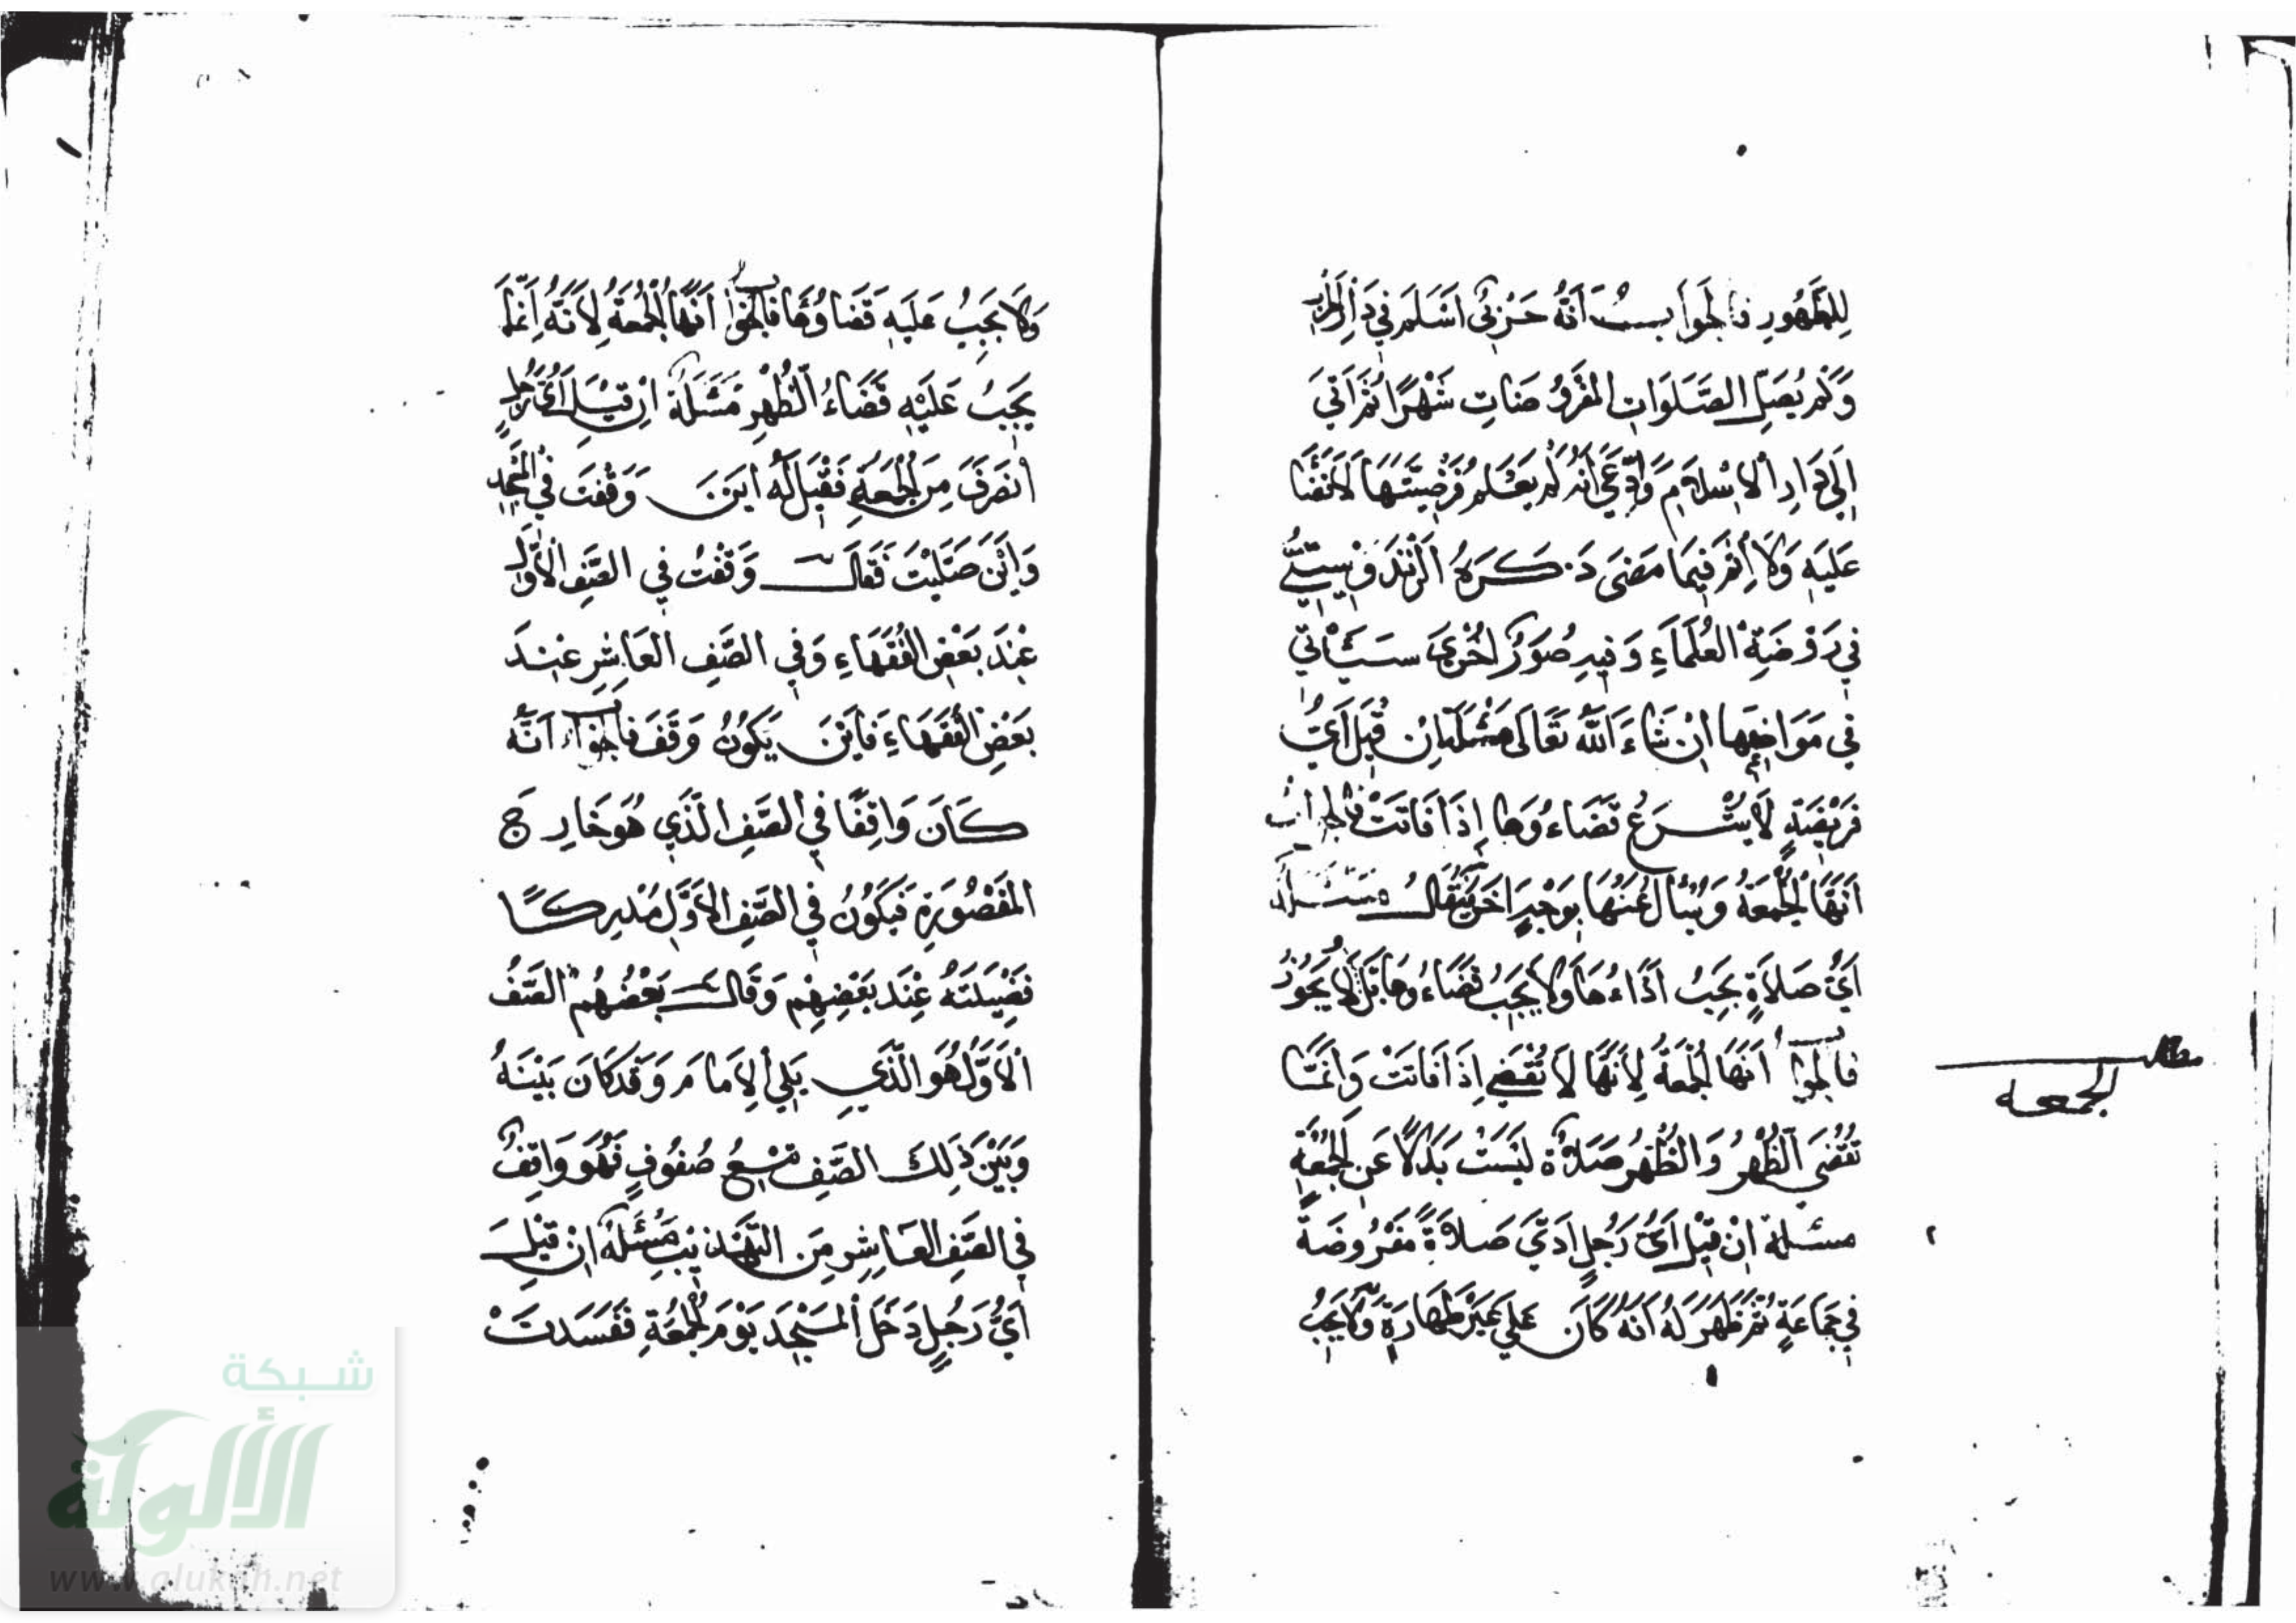 لِلطَّهُورِ فالجوابُ أَنَّهُ حَرْبِيٌّ أَسْلَمَ فِي دَارِ الحَرْبِ
وَلَمْ يُصَلِّ الصَّلَوَاتِ المَفْرُوضَاتِ شَهْرًا ثُمَّ أَتَى
إِلَى دَارِ الإِسْلَامِ وَادَّعَى أَنَّهُ لَمْ يَعْلَمْ فَرْضِيَّتَهَا لَا قَضَاءَ
عَلَيْهِ وَلَا إِثْمَ فِيمَا مَضَى ذَكَرَهُ الزَّنْدَوِيسَتِيُّ
فِي رَوْضَةِ العُلَمَاءِ وَفِيهِ صُوَرٌ أُخْرَى سَتَأْتِي
فِي مَوَاضِعِهَا إِنْ شَاءَ اللَّهُ تَعَالَى مَسْئَلَة إِنْ قِيلَ أَيُّ
فَرِيضَةٍ لَا يُشْرَعُ قَضَاءُوهَا إِذَا فَاتَتْ فالجواب
أَنَّهَا الجُمُعَةُ وَيُسْأَلُ عَنْهَا بِوَجْهٍ آخَرَ فَيُقَالُ مَسْئَلَة
أَيُّ صَلَاةٍ يَجِبُ أَدَاءُهَا وَلَا يَجِبُ قَضَاءُوهَا بَلْ لَا يَجُوزُ
فالجوابُ أَنَّهَا الجُمُعَةُ لِأَنَّهَا لَا تُقْضَى إِذَا فَاتَتْ وَإِنَّمَا
تُقْضَى الظُّهْرُ وَالظُّهْرُ صَلَاةٌ لَيْسَتْ بَدَلًا عَنِ الجُمُعَةِ
مسئلة إِنْ قِيلَ أَيُّ رَجُلٍ أَدَّى صَلَاةً مَفْرُوضَةً
فِي جَمَاعَةٍ ثُمَّ ظَهَرَ لَهُ أَنَّهُ كَانَ عَلَى غَيْرِ طَهَارَةٍ وَلَا يَجِبُ
مطلب
الجمعه
وَلَا يَجِبُ عَلَيْهِ قَضَاؤُهَا فَالجَوَابُ أَنَّهَا الجُمُعَةُ لِأَنَّهُ إِنَّمَا
يَجِبُ عَلَيْهِ قَضَاءُ الظُّهْرِ مَسْئَلَةٌ إِنْ قِيلَ أَيُّ رَجُلٍ
انْصَرَفَ مِنَ الجُمُعَةِ فَقِيلَ لَهُ أَيْنَ وَقَفْتَ فِي المَسْجِدِ
وَأَيْنَ صَلَّيْتَ فَقَالَ وَقَفْتُ فِي الصَّفِ الأَوَّلِ
عِنْدَ بَعْضِ الفُقَهَاءِ وَفِي الصَّفِ العَاشِرِ عِنْدَ
بَعْضِ الفُقَهَاءِ فَأَيْنَ يَكُونُ وَقَفَ فالجواب أَنَّهُ
كَانَ وَاقِفًا فِي الصَّفِ الَّذِي هُوَ خَارِج
المَقْصُورَةِ فَيَكُونُ فِي الصَّفِ الأَوَّلِ مُدْرِكًا
فَضِيلَتَهُ عِنْدَ بَعْضِهِمْ وَقَالَ بَعْضُهُمْ الصَّفُ
الأَوَّلُ هُوَ الَّذِي يَلِي الإِمَامَ وَقَدْ كَانَ بَيْنَهُ
وَبَيْنَ ذَلِكَ الصَّفِ تِسْعُ صُفُوفٍ فَهُوَ وَاقِفٌ
فِي الصَّفِ العَاشِرِ مِنَ التَّهْذِيبِ مَسْئَلَةٌ إِنْ قِيلَ
أَيُّ رَجُلٍ دَخَلَ المَسْجِدَ يَوْمَ الجُمُعَةِ فَفَسَدَتْ
شبكة
الألوكة
www.alukah.net